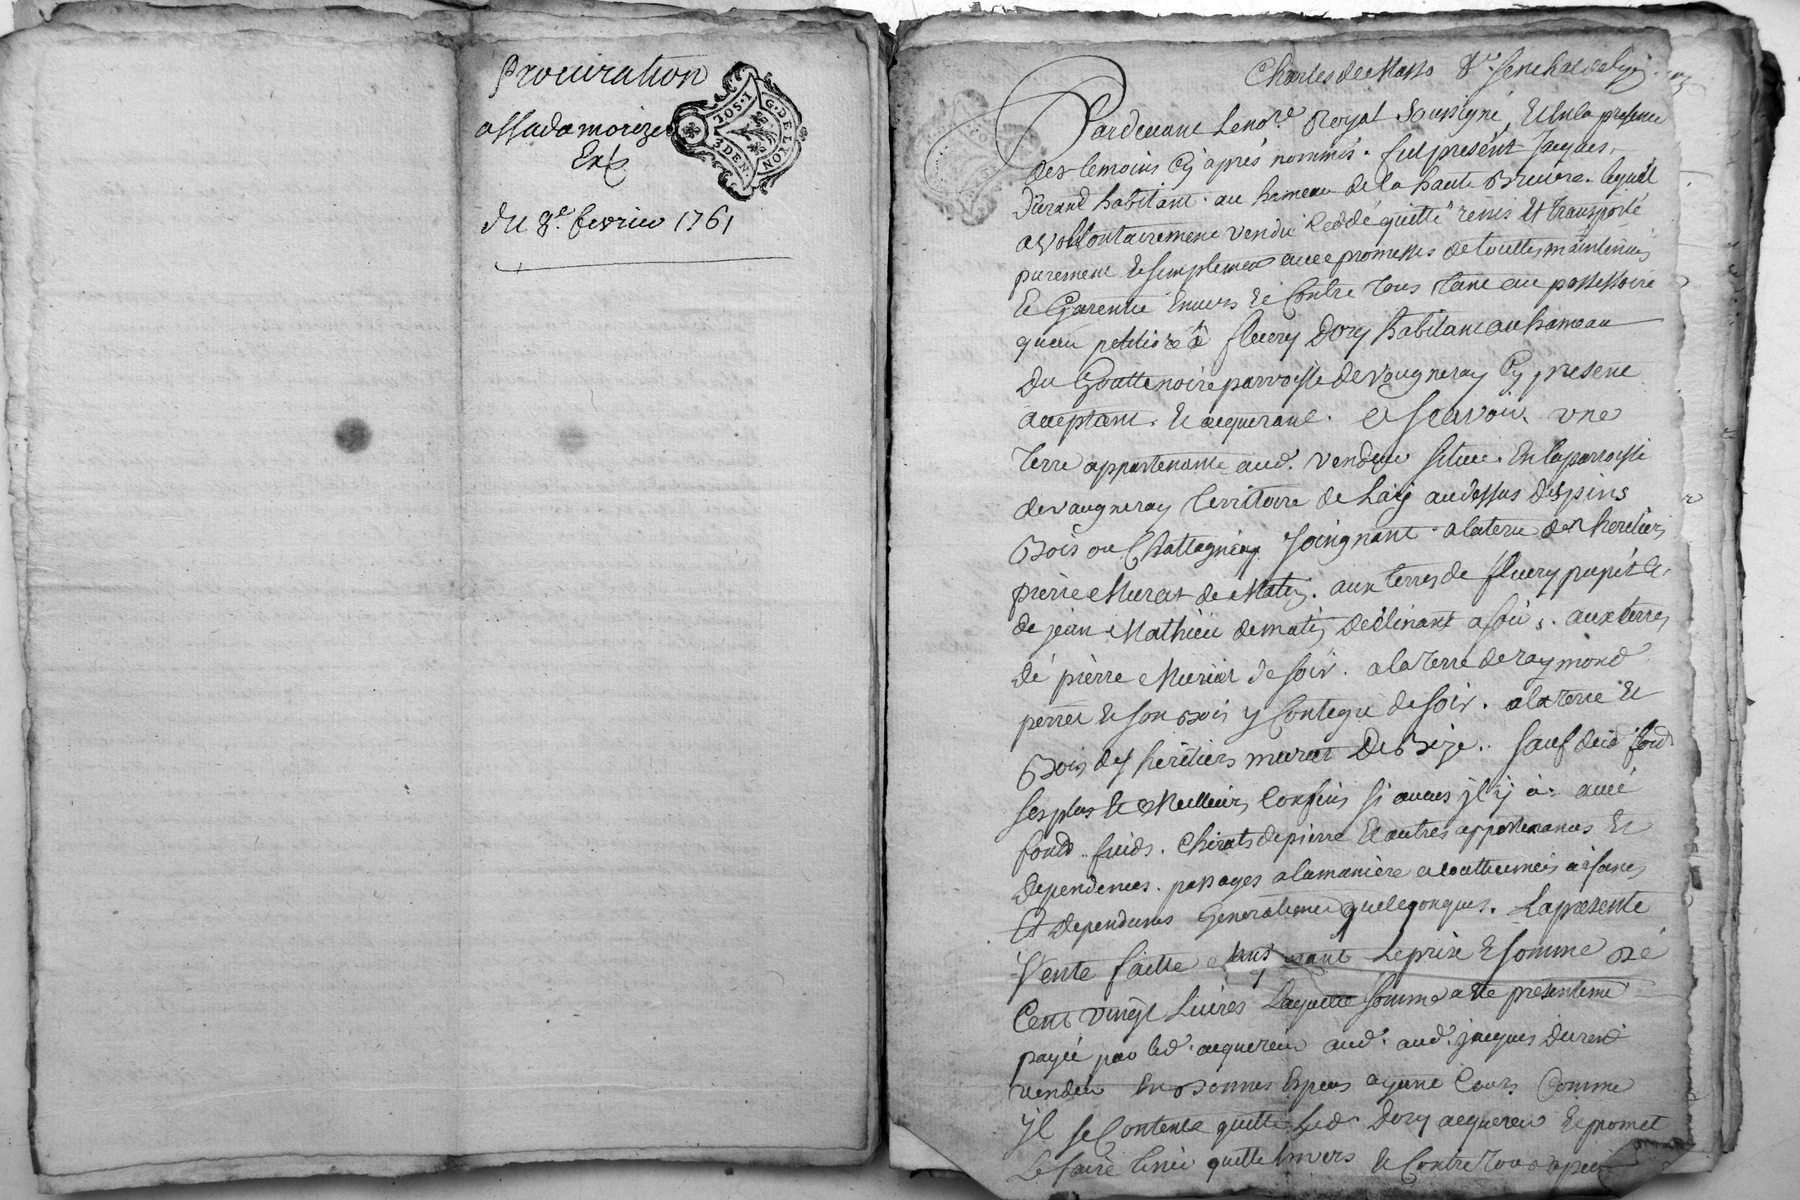 Procuration
assadamorizes
Ext
du 8e. fevrier 1761
1 SOL 3 DEN.
G. DE LYON
Charles de Masso Sr. senehal de
Pardevant Le nore. Royal Soussigné, Et en la presence
des temoins Cy après nommés. fut présent Jacques
Durand habitant au hameau de la haute Bruere. lequel
a vollontairement vendu Ceddé quitté remis Et transporté
purement Et simplement avec promesses de touttes maintenües
Et Garentie Envers Et Contre Tous tant au possessoire
qu'au petitoire à fleury Dory habitant au hameau
Du Gouttenoire parroisse de Vaugneray Cy present
acceptant. Et acquerant. a scavoir. une
Terre appartenante aud. Vendeur située. En la parroisse
de vaugneray Territoire de Laij au dessus des pins
Bois ou Chattagnier Joingnant. a la terre des heritiers
pierre Murat de Matij. aux terres de fleury pupit Et
de jean Mathieu de matij Declinant a soir. aux terres
dé pièrre Muriat de soir. a la Terre de raymond
perret Et son Bois y Contegu de soir. a la Terre Et
Bois des héritiers murat De Bize. sauf dud. fond
ses plus Et Meilleurs Confins si aucuns jl y à. avec
fond. fruids. Chirats de pierre Et autres appartenances Et
Dependences. passages a la manière accoutthumeés aisances
Et dependances Generalement quelconques. La présente
Vente faitte moyenant Le prix Et somme dé
Cent vingt Livres Laquelle somme a Eté presentement
payée par led. acquereur aud. aud. jacques Durand
vendeur En Bonnes Especes ayant Cours Comme
jl se Contente quitte Led. Dory acquereur Et promet
Le faire tenir quitte Envers Et Contre Tous